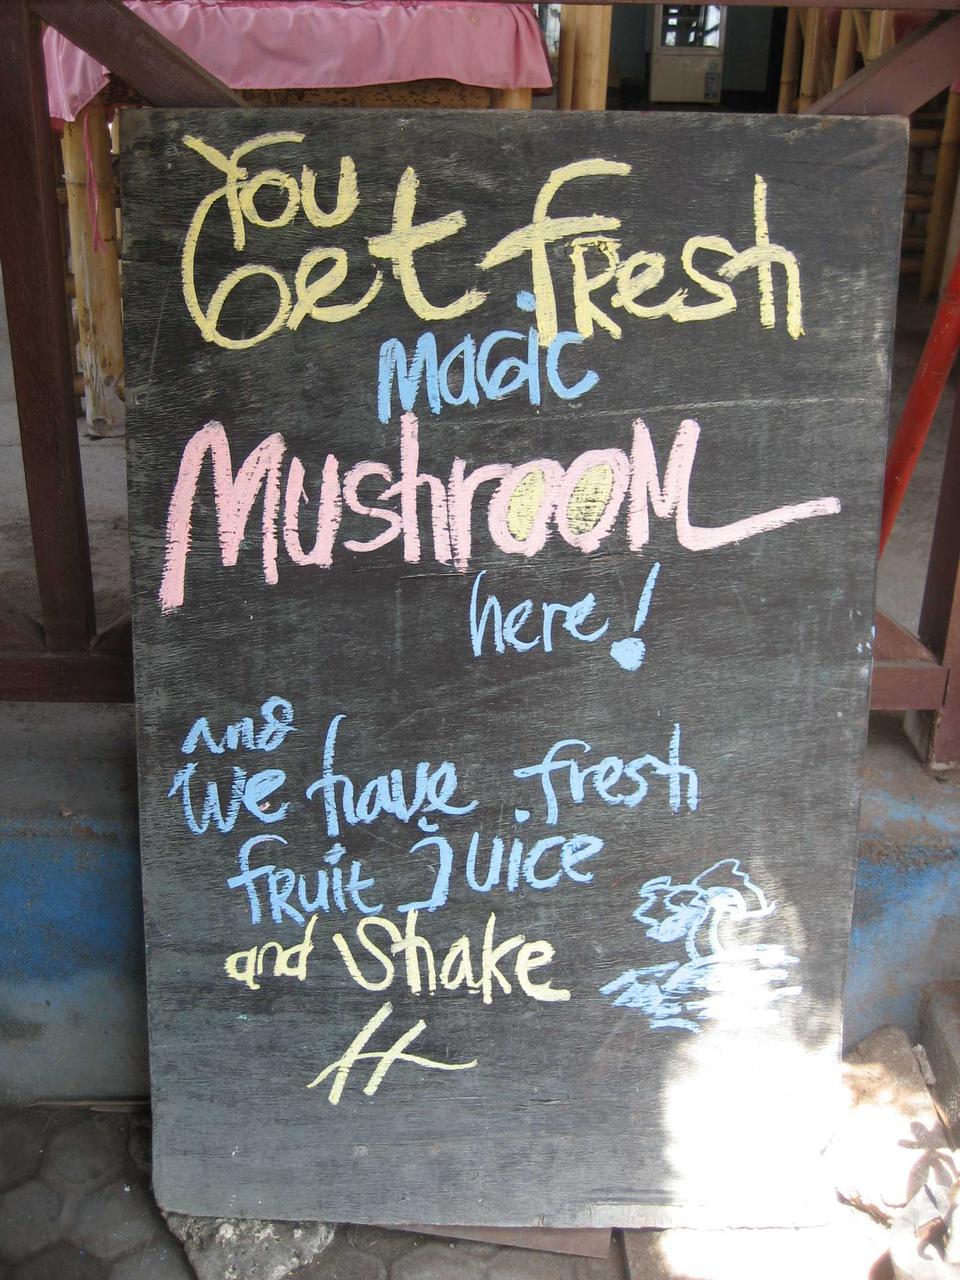 You
Get Fresh
MAGIC
MushrooM
here!
And
We have fresh
fruit Juice
and Shake